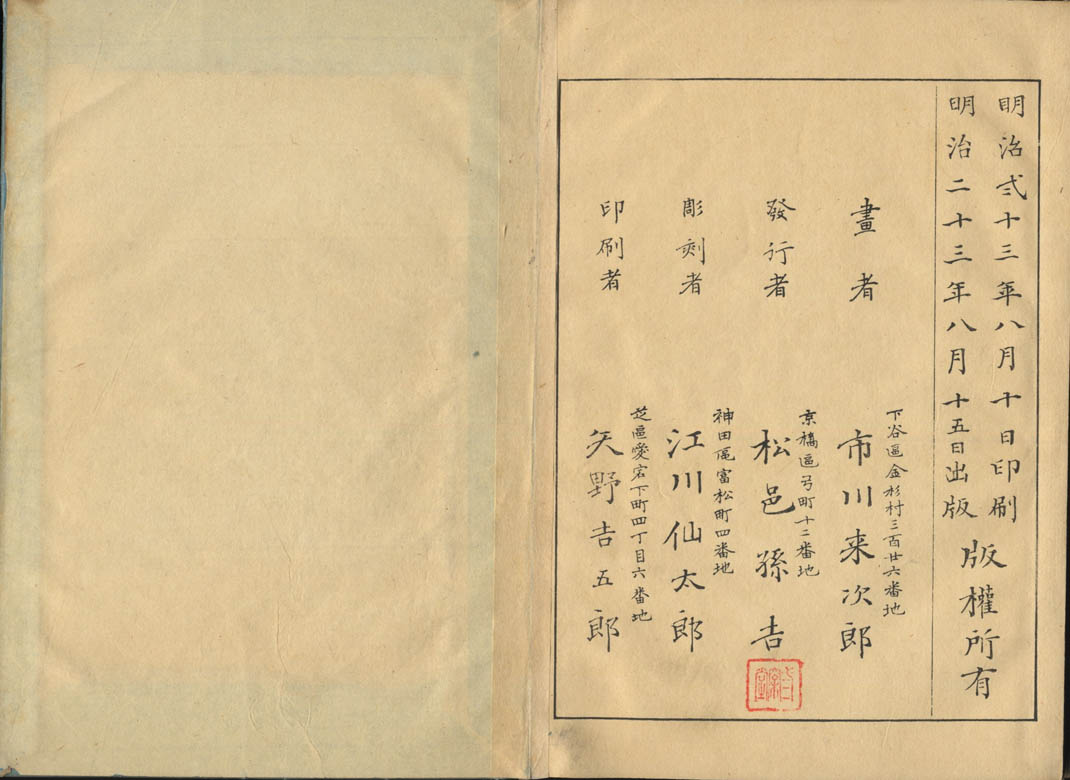 明治弍十三年八月十日印刷
明治二十三年八月十五日出版
版權所有
下谷區金杉村三百廿六番地
畫者 市川来次郎
京橋區弓町十二番地
發行者 松邑孫吉
神田區富松町四番地
彫刻者 江川仙太郎
芝區愛宕下町四丁目六番地
印刷者 矢野吉五郎